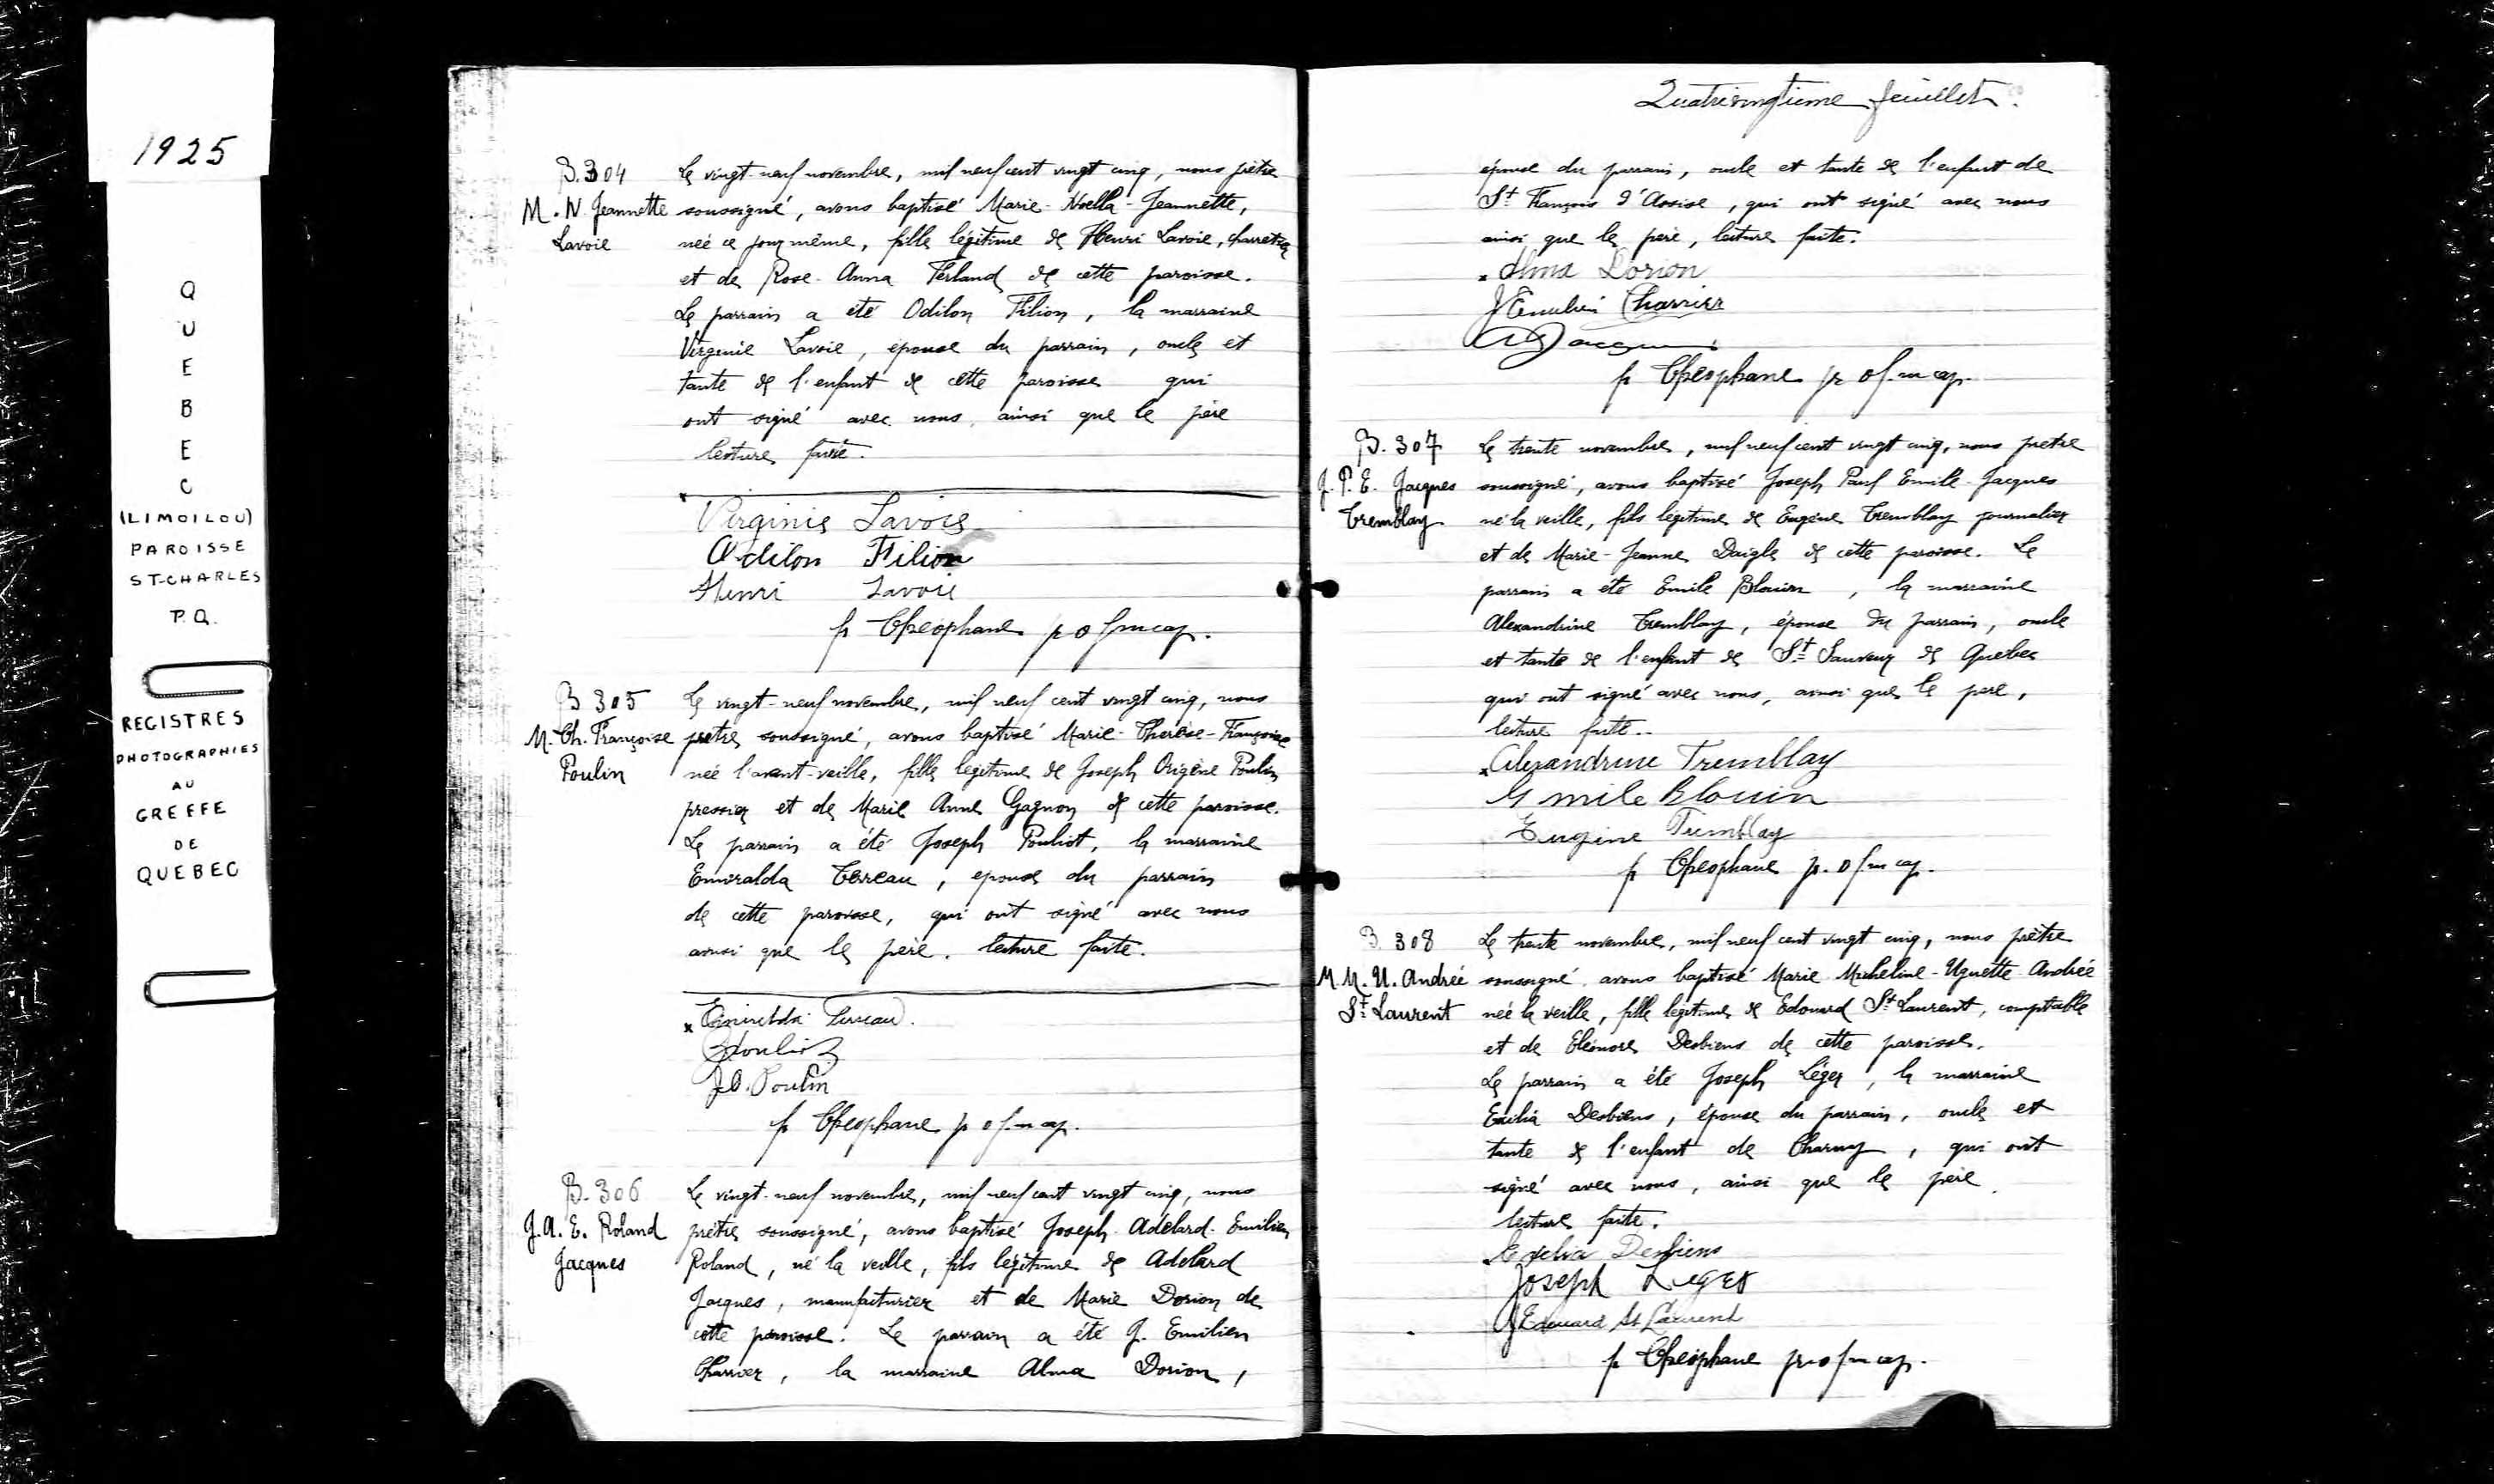 1925
QUEBEC
(LIMOILOU)
PAROISSE
ST-CHARLES
P.Q.
REGISTRES
PHOTOGRAPHIES
AU
GREFFE
DE
QUEBEC
B.304
M. N. Jeannette
Lavoie
Le vingt-neuf novembre, mil neuf cent vingt cinq, nous prêtre
soussigné, avons baptisé Marie-Noella-Jeannette,
née ce jour même, fille légitime de Henri Lavoie, charretier
et de Rose-Anna Ferland de cette paroisse.
Le parrain a été Odilon Filion, la marraine
Virginie Lavoie, épouse du parrain, oncle et
tante de l'enfant de cette paroisse qui
ont signé avec nous, ainsi que le père
lecture faite.
Virginie Lavoie
Odilon Filion
Henri Lavoie
fr Théophane p o f m cap.
B 305
M. Th. Françoise
Poulin
Le vingt-neuf novembre, mil neuf cent vingt cinq, nous
prêtre soussigné, avons baptisé Marie-Thérèse-Françoise
née l'avant-veille, fille légitime de Joseph Origène Poulin
pressier et de Marie Anne Gagnon de cette paroisse.
Le parrain a été Joseph Pouliot, la marraine
Emiralda Terreau, épouse du parrain
de cette paroisse, qui ont signé avec nous
ainsi que le père. lecture faite.
x Terreau.
Pouliot
J.O. Poulin
fr Théophane p o f. m cap.
B. 306
J. A. E. Roland
Jacques
Le vingt-neuf novembre, mil neuf cent vingt cinq, nous
prêtre soussigné, avons baptisé Joseph-Adélard-Emilien
Roland, né la veille, fils légitime de Adélard
Jacques, manufacturier et de Marie Dorion de
cette paroisse. Le parrain a été J. Emilien
Charrier, la marraine Alma Dorion,
Quatrevingtième feuillet.
épouse du parrain, oncle et tante de l'enfant de
St François d'Assise, qui ont signé avec nous
ainsi que le père, lecture faite.
x Alma Dorion
J Emilien Charrier
fr Théophane p o f. m cap.
B. 307
J. P. E. Jacques
Tremblay
Le trente novembre, mil neuf cent vingt cinq, nous prêtre
soussigné, avons baptisé Joseph Paul Emile Jacques
né la veille, fils légitime de Eugène Tremblay journalier
et de Marie-Jeanne Daigle de cette paroisse. Le
parrain a été Emile Blouin, la marraine
Alexandrine Tremblay, épouse du parrain, oncle
et tante de l'enfant de St Sauveur de Québec
qui ont signé avec nous, ainsi que le père,
lecture faite..
x Alexandrine Tremblay
Emile Blouin
Eugène Tremblay
fr Théophane p. o f m cap.
B 308
M. M. U. Andrée
St Laurent
Le trente novembre, mil neuf cent vingt cinq, nous prêtre
soussigné avons baptisé Marie Micheline-Uguette Andrée
née la veille, fille légitime de Edouard St Laurent, comptable
et de Eléonore Desbiens de cette paroisse.
Le parrain a été Joseph Léger, la marraine
Exilia Desbiens, épouse du parrain, oncle et
tante de l'enfant de Charny, qui ont
signé avec nous, ainsi que le père
lecture faite.
Exelia Desbiens
Joseph Leger
J Edouard St Laurent
fr Théophane p o f m cap.